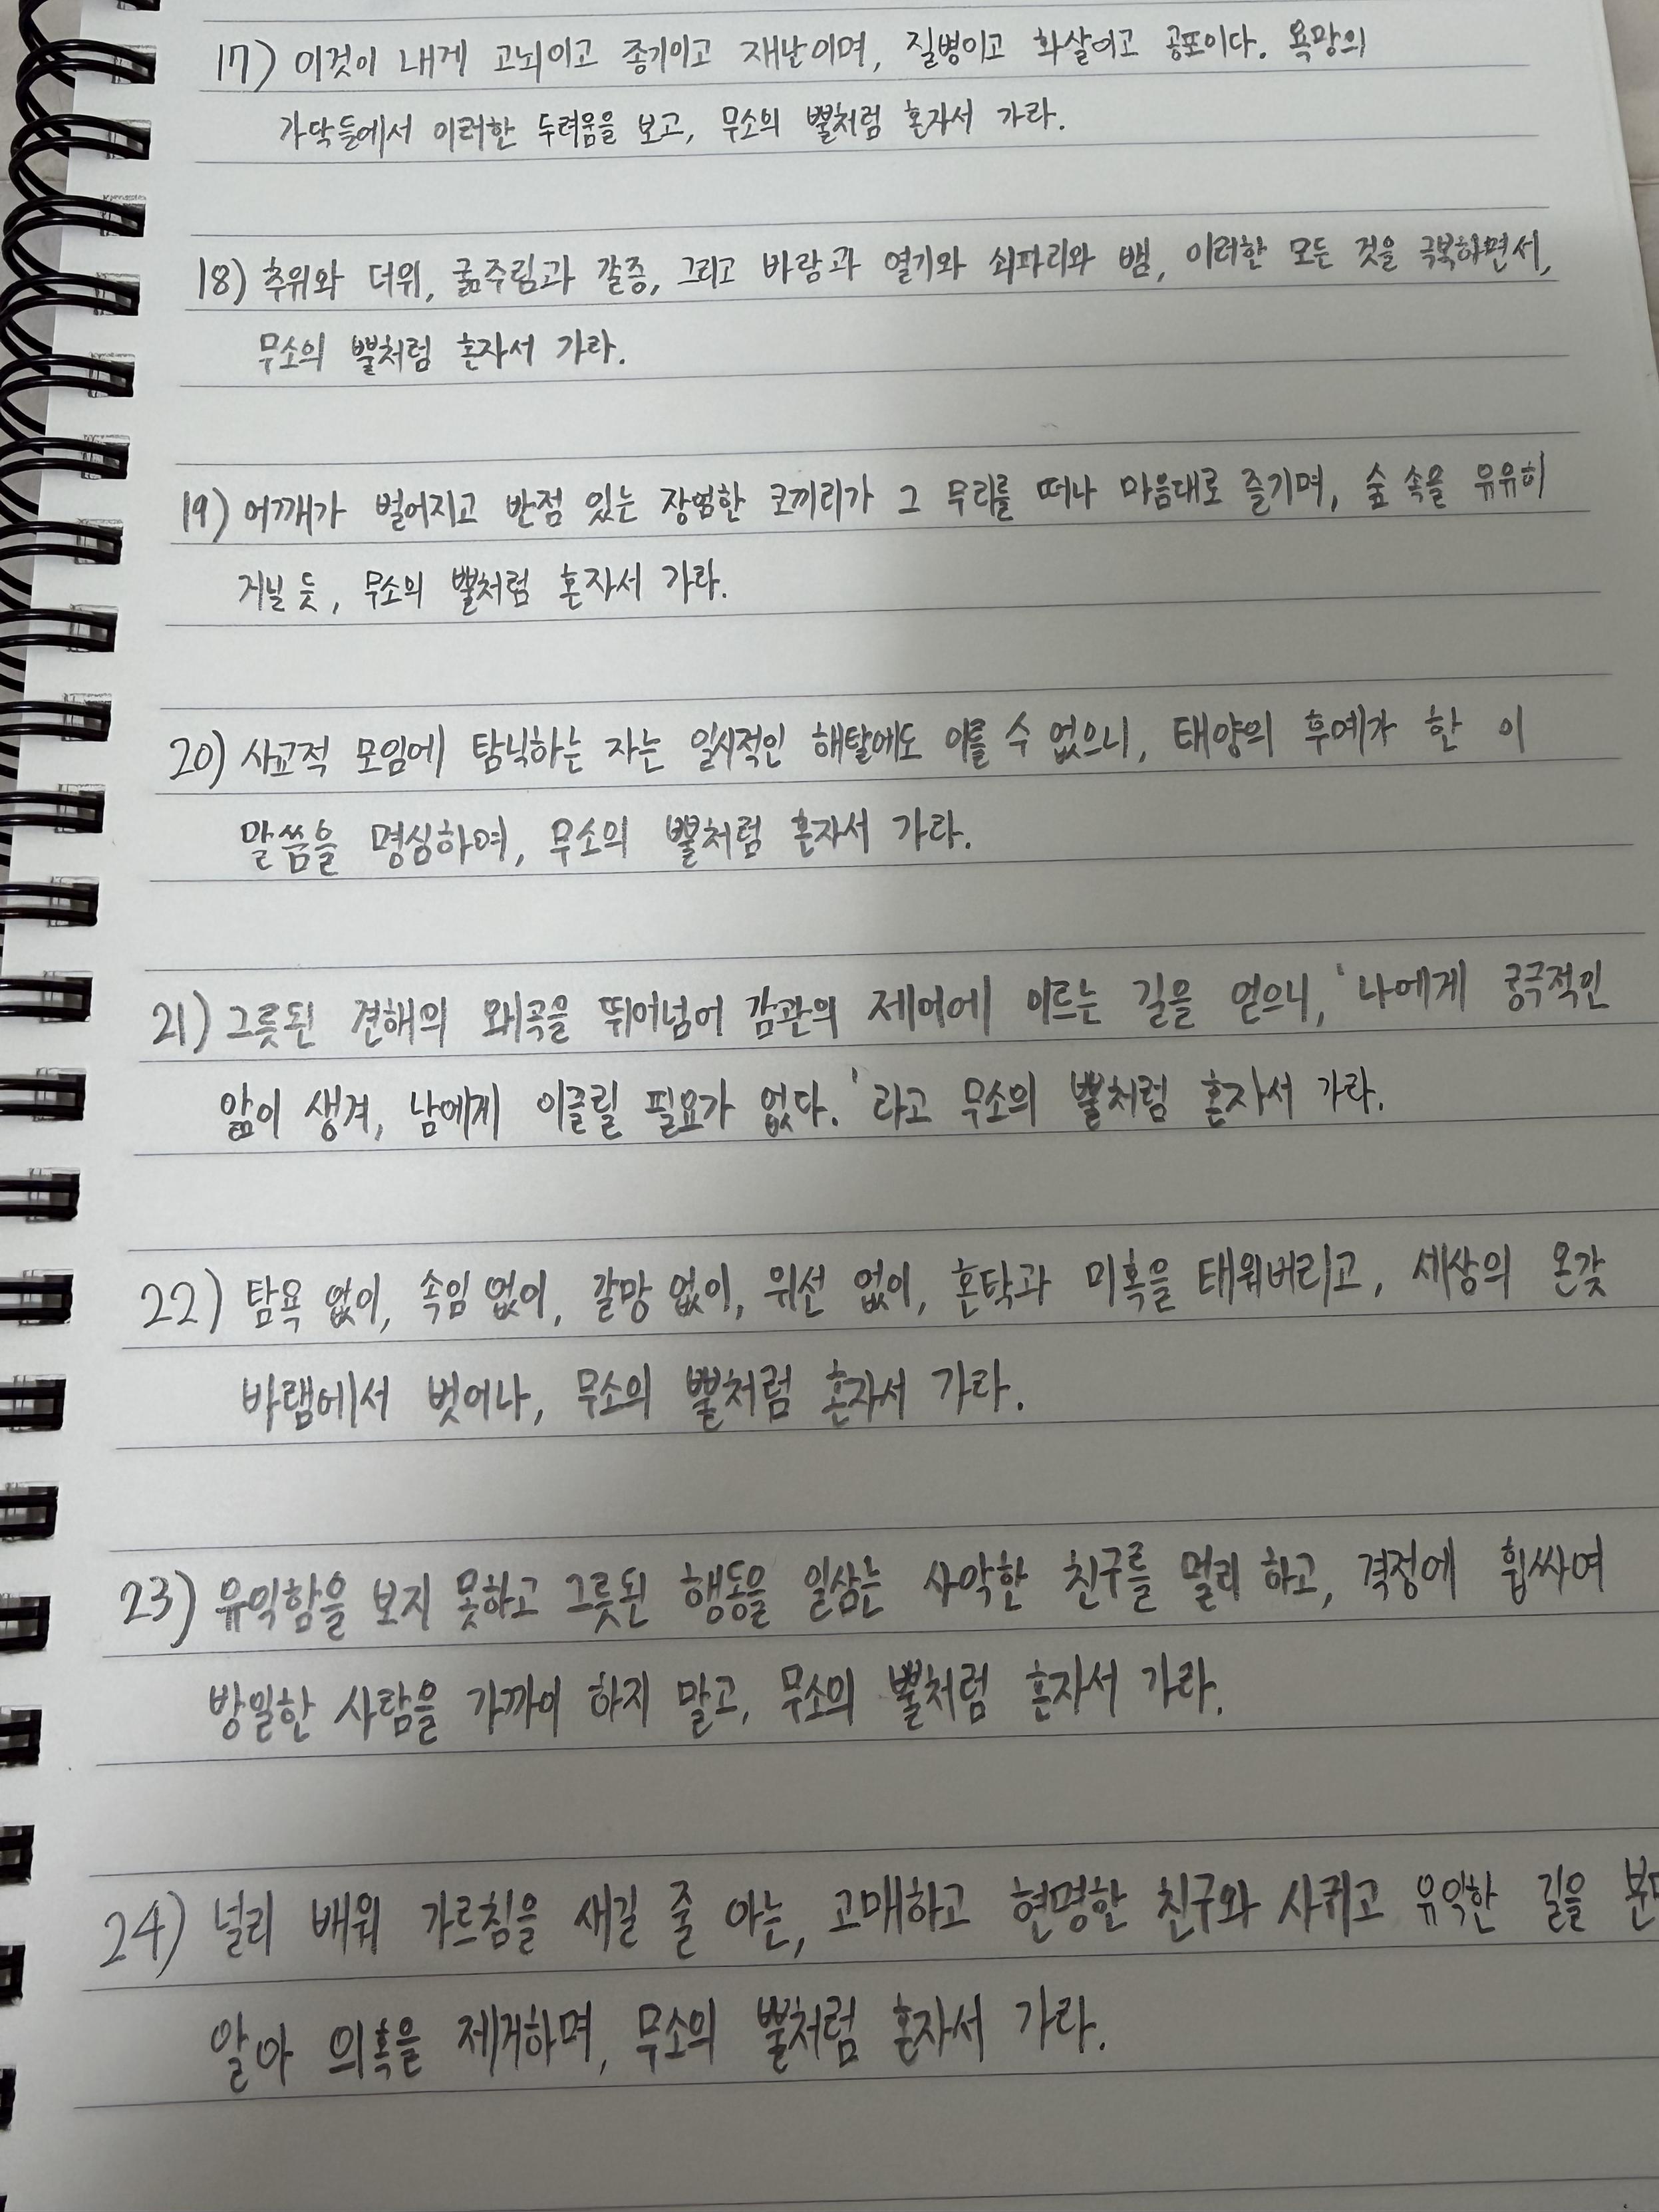 17) 이것이 내게 고뇌이고 종기이고 재난이며, 질병이고 화살이고 공포이다. 욕망의
가닥들에서 이러한 두려움을 보고, 무소의 뿔처럼 혼자서 가라.
18) 추위와 더위, 굶주림과 갈증, 그리고 바람과 열기와 쇠파리와 뱀, 이러한 모든 것을 극복하면서,
무소의 뿔처럼 혼자서 가라.
19) 어깨가 벌어지고 반점 있는 장엄한 코끼리가 그 무리를 떠나 마음대로 즐기며, 숲 속을 유유히
거닐 듯, 무소의 뿔처럼 혼자서 가라.
20) 사교적 모임에 탐닉하는 자는 일시적인 해탈에도 이를 수 없으니, 태양의 후예가 한 이
말씀을 명심하여, 무소의 뿔처럼 혼자서 가라.
21) 그릇된 견해의 왜곡을 뛰어넘어 감관의 제어에 이르는 길을 얻으니, '나에게 궁극적인
앎이 생겨, 남에게 이끌릴 필요가 없다.'라고 무소의 뿔처럼 혼자서 가라.
22) 탐욕 없이, 속임 없이, 갈망 없이, 위선 없이, 혼탁과 미혹을 태워버리고, 세상의 온갖
바램에서 벗어나, 무소의 뿔처럼 혼자서 가라.
23) 유익함을 보지 못하고 그릇된 행동을 일삼는 사악한 친구를 멀리 하고, 격정에 휩싸여
방일한 사람을 가까이 하지 말고, 무소의 뿔처럼 혼자서 가라.
24) 널리 배워 가르침을 새길 줄 아는, 고매하고 현명한 친구와 사귀고 유익한 길을
알아 의혹을 제거하며, 무소의 뿔처럼 혼자서 가라.